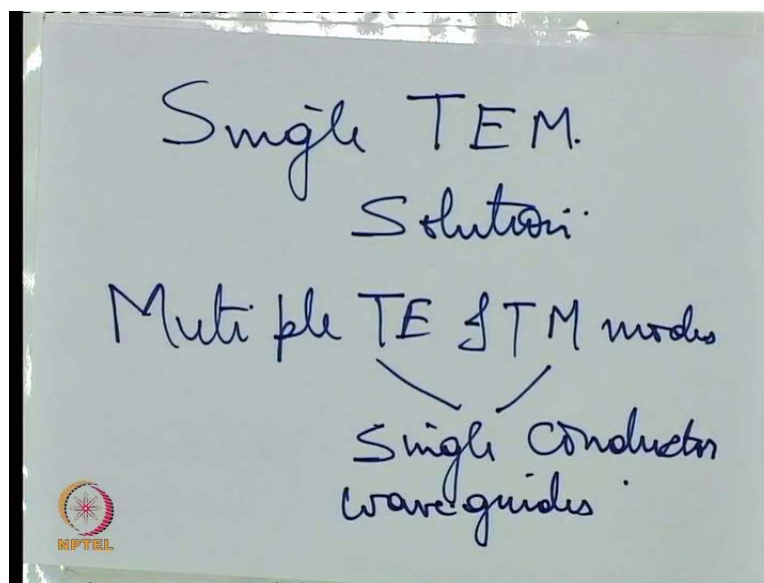 Single TEM.
Solution.
Multiple TE & TM modes
Single Conductor
waveguides
NPTEL